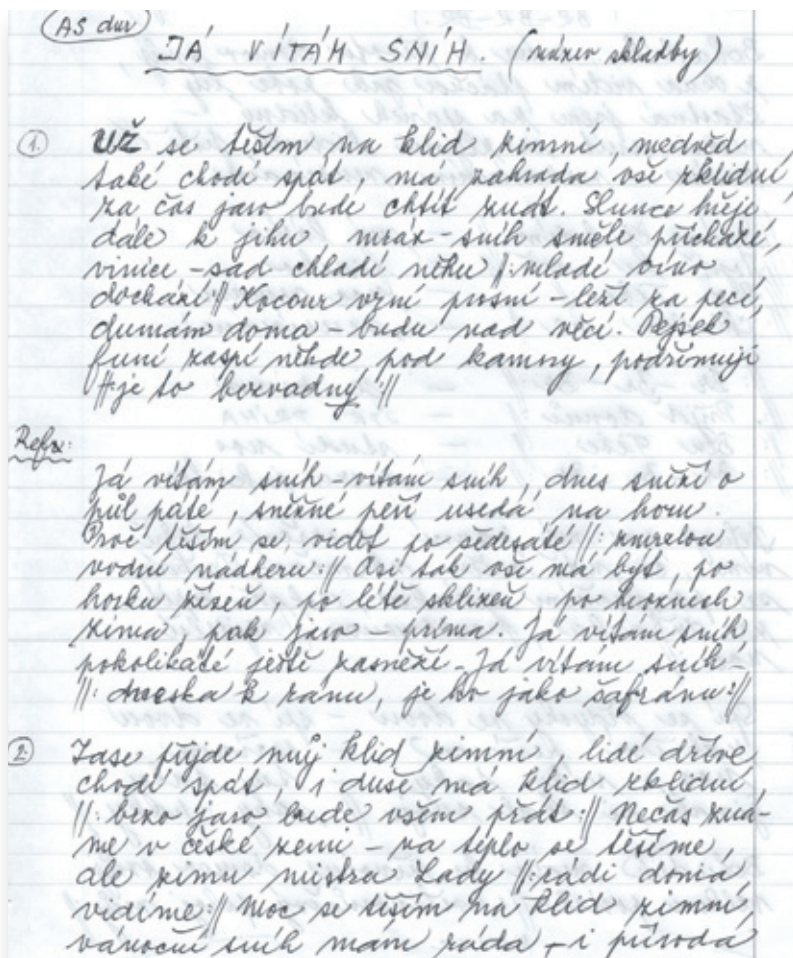 AS dur
JÁ VÍTÁM SNÍH. (název skladby)
1. UŽ se těším na klid zimní, medvěd
také chodí spát, má zahrada vše zklidní
za čas jaro bude chtít zndt. Slunce hřeje,
dále k jihu, mráz-sníh směle přichází,
vinice-sad chladí něhu ||: mladé víno
dochází :|| Kocour vrní prosní-leží za pecí,
dumám doma-budu nad věcí. Pejsek
funí zaspí někde pod kamny, podřimují
||: je to bezvadný :||
Refr:
Já vítám sníh-vítám sníh, dnes sněží o
půl páté, sněžné peří usedá na horu.
Proč těším se, vidět po šedesáté ||: zmrzlou
vodní nádheru :|| Asi tak vše má být, po
horku zízeň, po létě sklizeň, po hroznech
zima, pak jaro-príma. Já vítám sníh,
pokolikáté ještě zasněží-Já vítám sníh-
||: dneska k ránu, je ho jako šafránu :||
2. Zase přijde můj klid zimní, lidé dříve
chodí spát, i duše má klid zklidní,
||: brzo jaro bude všem přát :|| Nečas zná-
me v české zemi-na teplo se těšíme,
ale zimu mistra Lady ||: rádi doma
vidíme :|| Moc se těším na klid zimní,
vánoční sníh mám ráda-i příroda